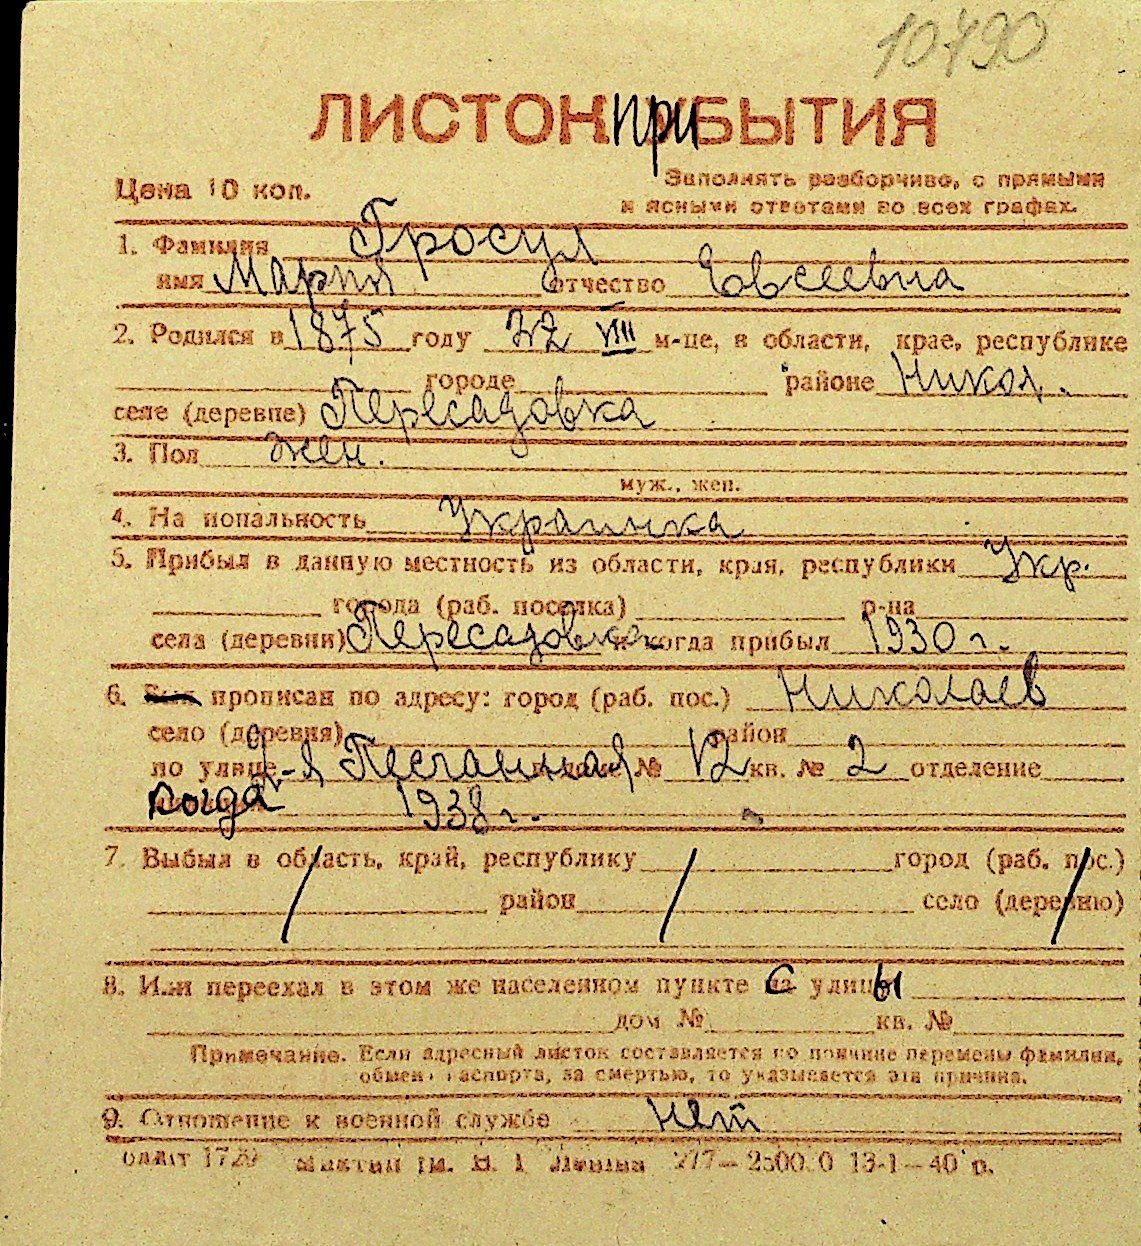 10790
ЛИСТОК ПРИБЫТИЯ
Цена 10 коп.
Заполнять разборчиво, с прямыми
и ясными ответами во всех графах.
1. Фамилия Гросул
имя Мария отчество Евсеевна
2. Родился в 1875 году 22 VIII м-це, в области, крае, республике
городе районе Никол.
селе (деревне) Пересадовка
3. Пол жен.
муж., жен.
4. На иональность Украинка
5. Прибыл в данную местность из области, края, республики Укр.
города (раб. поселка) р-на
села (деревни) Пересадовка и когда прибыл 1930 г.
6. Был прописан по адресу: город (раб. пос.) Николаев
село (деревня) район
по улице -я Песчанная № 12 кв. № 2 отделение
когда 1938 г.
7. Выбыл в область, край, республику город (раб. пос.)
район село (деревню)
8. Или переехал в этом же населенном пункте с улицы
дом № кв. №
Примечание. Если адресный листок составляется по причине перемены фамилии,
обмена паспорта, за смертью, то указывается эта причина.
9. Отношение к военной службе нет
1729 Ленина 277— 13-1—40 р.